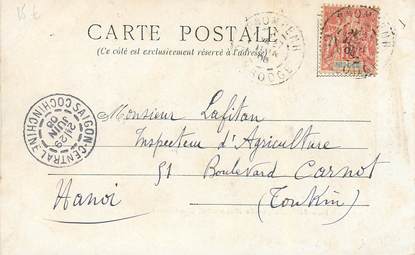 15 €
CARTE POSTALE
(Ce côté est exclusivement réservé à l'adresse)
PNOM-PENH
CAMBODGE
SAIGON-CENTRAL
COCHINCHINE
JUIN
Monsieur Lafitan
Inspecteur d'Agriculture
51 Boulevard Carnot
Hanoi (Tonkin)